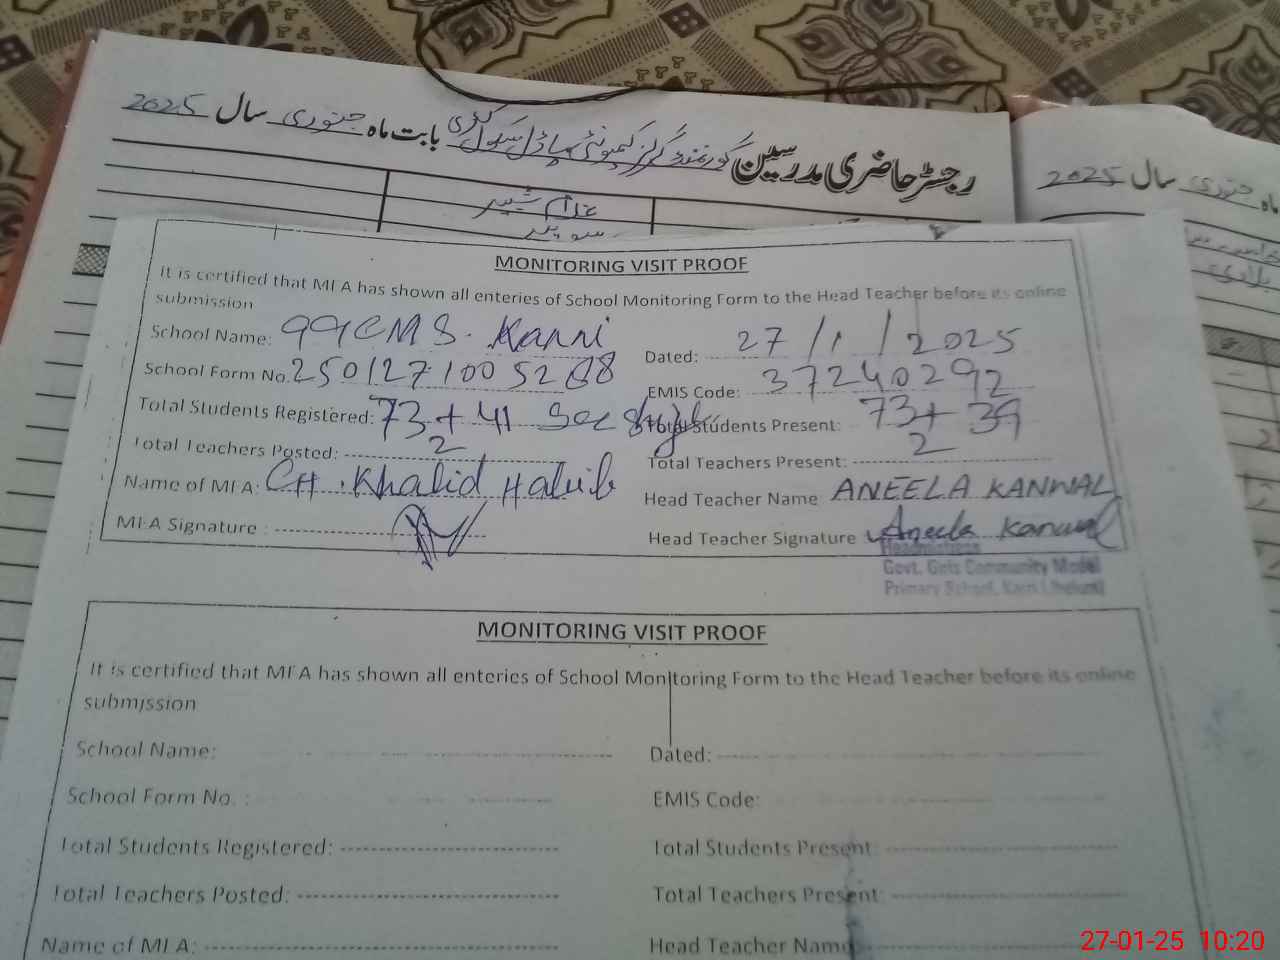 رجسٹر حاضری مدرسین گورنمنٹ گرلز کمیونٹی ماڈل سکول کڑی بابت ماہ جنوری سال 2025
ماہ جنوری سال 2025
غلام شبیر
سویپر
MONITORING VISIT PROOF
It is certified that MEA has shown all enteries of School Monitoring Form to the Head Teacher before its online
submission
School Name: GGCMS. Karri Dated: 27/1/2025
School Form No. 25012710052688 EMIS Code: 37240292
Total Students Registered: 73 + 41 Sec Shift Total Students Present: 73 + 39
Total Teachers Posted: 2 Total Teachers Present: 2
Name of MEA: CH. Khalid Habib Head Teacher Name ANEELA KANWAL
MEA Signature : Head Teacher Signature Aneela Kanwal
Headmistress
Govt. Girls Community Model
Primary School, Karri (Jhelum)
MONITORING VISIT PROOF
It is certified that MEA has shown all enteries of School Monitoring Form to the Head Teacher before its online
submission
School Name: Dated:
School Form No. : EMIS Code:
Total Students Registered: Total Students Present:
Total Teachers Posted: Total Teachers Present:
Name of MEA: Head Teacher Name
27-01-25 10:20